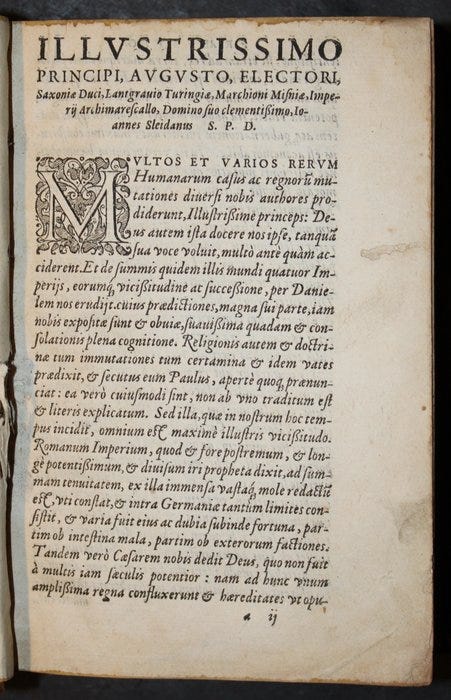 ILLVSTRISSIMO
PRINCIPI, AVGVSTO, ELECTORI,
Saxoniæ Duci, Lantgrauio Turingiæ, Marchioni Misniæ, Impe-
rij Archimarescallo, Domino suo clementißimo, Io-
annes Sleidanus S. P. D.
MVLTOS ET VARIOS RERVM
Humanarum casus ac regnorũ mu-
tationes diuersi nobis authores pro-
diderunt, Illustrißime princeps: De-
us autem ista docere nos ipse, tanquã
sua voce voluit, multò ante quàm ac-
ciderent. Et de summis quidem illis mundi quatuor Im-
perijs, eorumq́, vicißitudine ac succeßione, per Danie-
lem nos erudijt. cuius prædictiones, magna sui parte, iam
nobis expositæ sunt & obuiæ, suauißima quadam & con-
solationis plena cognitione. Religionis autem & doctri-
næ tum immutationes tum certamina & idem vates
prædixit, & secutus eum Paulus, apertè quoq, prænun-
ciat: ea verò cuiusmodi sint, non ab vno traditum est
& literis explicatum. Sed illa, quæ in nostrum hoc tem-
pus incidit, omnium est maximè illustris vicißitudo.
Romanum Imperium, quod & fore postremum, & lon-
gè potentißimum, & diuisum iri propheta dixit, ad sum-
mam tenuitatem, ex illa immensa vastaq, mole redactũ
est, vti constat, & intra Germaniæ tantum limites con-
sistit, & varia fuit eius ac dubia subinde fortuna, par-
tim ob intestina mala, partim ob exterorum factiones.
Tandem verò Cæsarem nobis dedit Deus, quo non fuit
à multis iam sæculis potentior: nam ad hunc vnum
amplißima regna confluxerunt & hæreditates vt opu-
a ij